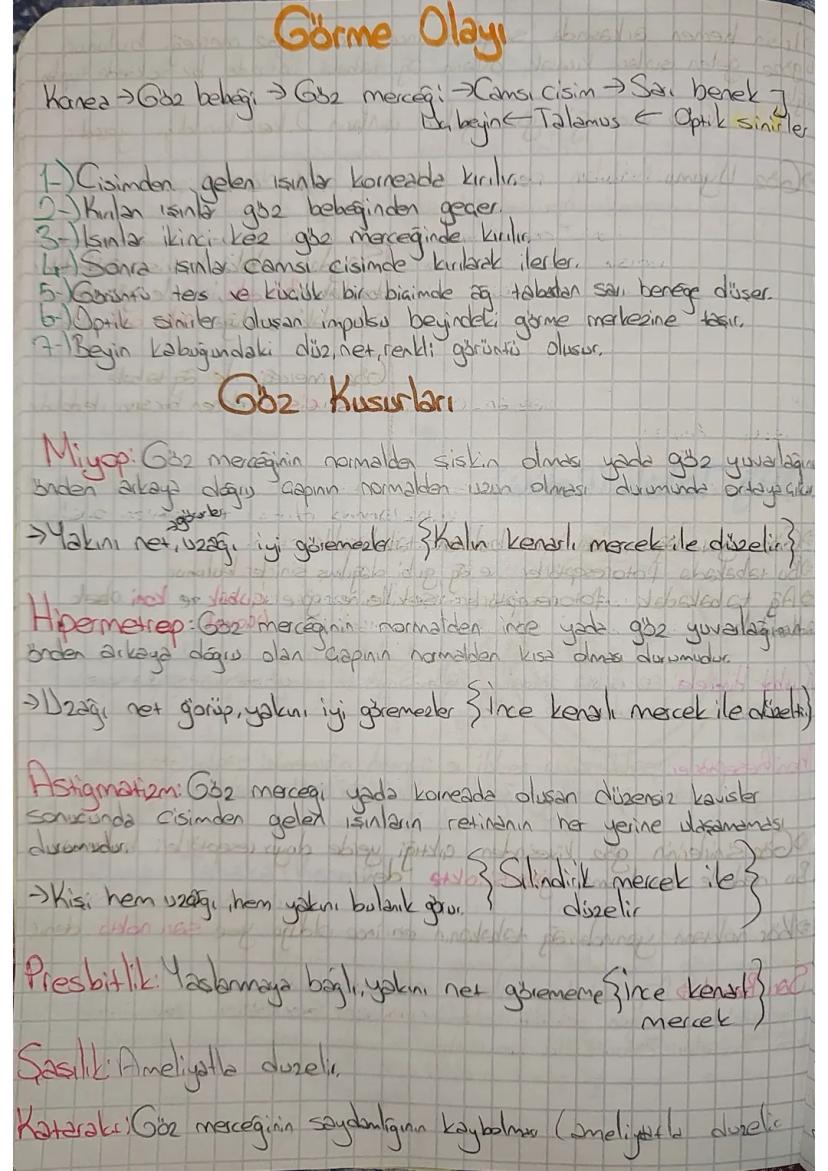 Görme Olayı
Kornea → Göz bebeği → Göz merceği → Camsı cisim → Sarı benek
Uç beyin ← Talamus ← Optik sinirler
1-) Cisimden gelen ışınlar korneada kırılır.
2-) Kırılan ışınlar göz bebeğinden geçer.
3-) Işınlar ikinci kez göz merceğinde kırılır.
4-) Sonra ışınlar camsı cisimde kırılarak ilerler.
5-) Görüntü ters ve küçük bir biçimde ağ tabadan sarı benege düşer.
6-) Optik sinirler oluşan impulsu beyindeki görme merkezine taşır.
7-) Beyin kabuğundaki düz, net, renkli görüntü oluşur.
Göz Kusurları
Miyop: Göz merceğinin normalden şişkin olması yada göz yuvarlağın
önden arkaya doğru çapının normalden uzun olması durumunda ortaya çıkar
→ Yakını net görürler, uzağı iyi göremezler {Kalın kenarlı mercek ile düzelir}
Hipermetrop: Göz merceğinin normalden ince yada göz yuvarlağının
önden arkaya doğru olan çapının normalden kısa olması durumudur.
→ Uzağı net görüp, yakını iyi göremezler {ince kenarlı mercek ile düzelir}
Astigmatizm: Göz mercegi yada korneada oluşan düzensiz kavisler
sonucunda cisimden gelen ışınların retinanın her yerine ulaşamaması
durumudur.
{Silindirik mercek ile
→ Kişi hem uzağı, hem yakını bulanık görür.
düzelir}
Presbitlik: Yaşlanmaya bağlı, yakını net görememe {ince kenarlı
mercek}
Şaşılık: Ameliyatla duzelir.
Katarakt: Göz merceğinin saydamlığının kaybolması (ameliyatla duzelir